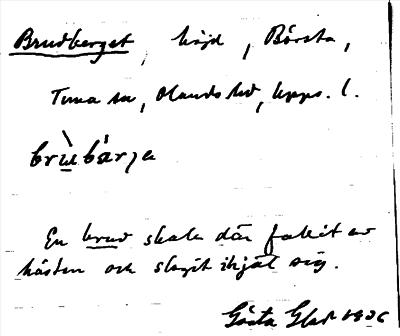 Brudberget, höjd, Börsta,
Tuna sn, Olands hd, Upps. l.
brùbárja
En brud skale där fallit av
hästen och slagit ihjäl sig.
Gösta